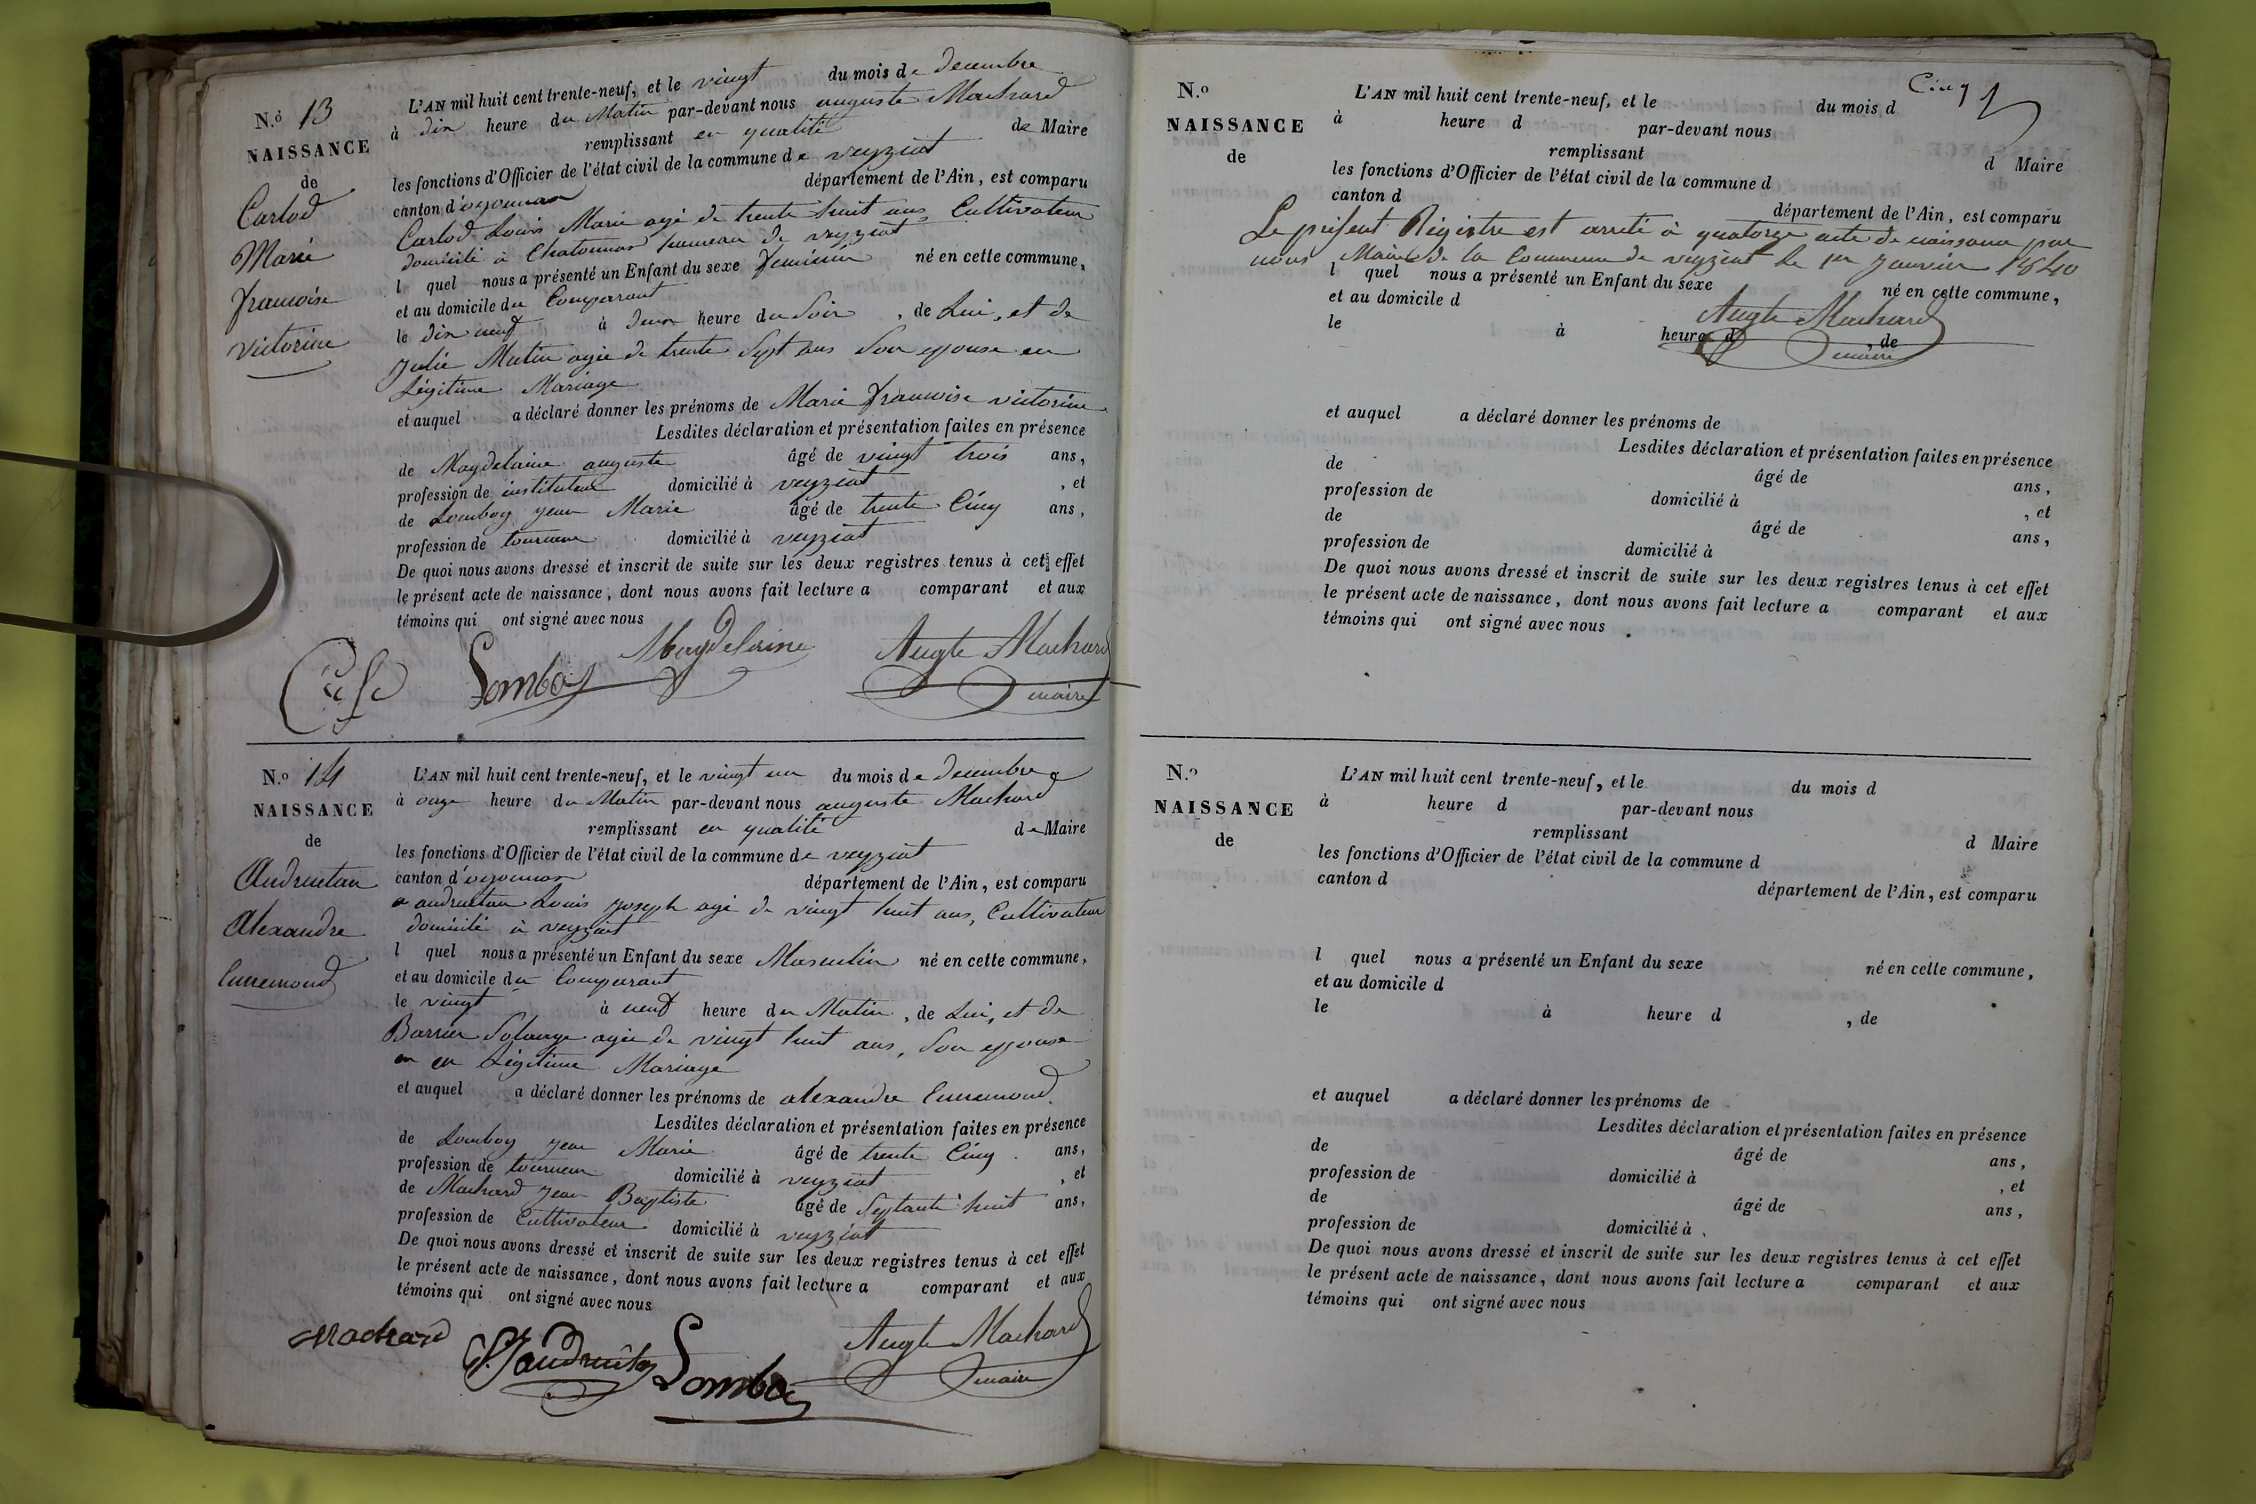 N.º 13
NAISSANCE
de
Carlod
Marie
francoise
victorine
L'AN mil huit cent trente-neuf, et le vingt du mois de decembre
à dix heure du Matin par-devant nous auguste Machard
remplissant en qualité de Maire
les fonctions d'Officier de l'état civil de la commune de veyziat
canton d'oyonnax département de l'Ain, est comparu
Carlod Louis Marie agé de trente huit ans, Cultivateur
domicilié à Chatonnax hameau de veyziat
l quel nous a présenté un Enfant du sexe feminin né en cette commune,
et au domicile du Comparant
le dix neuf à deux heure du Soir, de Lui, et de
Julie Mutin agée de trente Sept ans Son epouse en
Légitime Mariage
et auquel a déclaré donner les prénoms de Marie francoise victorine
Lesdites déclaration et présentation faites en présence
de Maydelaine auguste âgé de vingt trois ans,
profession de instituteur domicilié à veyziat, et
de Lomboy jean Marie âgé de trente Cinq ans,
profession de tourneur domicilié à veyziat
De quoi nous avons dressé et inscrit de suite sur les deux registres tenus à cet effet
le présent acte de naissance, dont nous avons fait lecture a comparant et aux
témoins qui ont signé avec nous
Lomboy Maydelaine Augte Machard
maire
N.º 14
NAISSANCE
de
Audruetan
Alexandre
Ennemond
L'AN mil huit cent trente-neuf, et le vingt un du mois de decembre
à onze heure du Matin par-devant nous auguste Machard
remplissant en qualité de Maire
les fonctions d'Officier de l'état civil de la commune de veyziat
canton d'oyonnax département de l'Ain, est comparu
audruetan Louis joseph agé de vingt huit ans, Cultivateur
domicilié à veyziat
l quel nous a présenté un Enfant du sexe Masculin né en cette commune,
et au domicile du Comparant
le vingt à neuf heure du Matin, de Lui, et de
Barrier Solange agée de vingt huit ans, Son epouse
en Légitime Mariage
et auquel a déclaré donner les prénoms de alexandre Ennemond
Lesdites déclaration et présentation faites en présence
de Lomboy jean Marie âgé de trente Cinq ans,
profession de tourneur domicilié à veyziat, et
de Machard jean Baptiste âgé de Septante huit ans,
profession de Cultivateur domicilié à veyziat
De quoi nous avons dressé et inscrit de suite sur les deux registres tenus à cet effet
le présent acte de naissance, dont nous avons fait lecture a comparant et aux
témoins qui ont signé avec nous
Machard Lomboy Augte Machard
maire
Cinq
N.º
NAISSANCE
de
L'AN mil huit cent trente-neuf, et le du mois d
à heure d par-devant nous
remplissant d Maire
les fonctions d'Officier de l'état civil de la commune d
canton d département de l'Ain, est comparu
Le présent Régistre est arrêté à quatorze acte de naissance par
nous Maire de la Commune de veyziat le 1er Janvier 1840
l quel nous a présenté un Enfant du sexe né en cette commune,
et au domicile d
Augte Machard
le à heure d, de
maire
et auquel a déclaré donner les prénoms de
Lesdites déclaration et présentation faites en présence
de âgé de ans,
profession de domicilié à, et
de âgé de ans,
profession de domicilié à
De quoi nous avons dressé et inscrit de suite sur les deux registres tenus à cet effet
le présent acte de naissance, dont nous avons fait lecture a comparant et aux
témoins qui ont signé avec nous
N.º
NAISSANCE
de
L'AN mil huit cent trente-neuf, et le du mois d
à heure d par-devant nous
remplissant d Maire
les fonctions d'Officier de l'état civil de la commune d
canton d département de l'Ain, est comparu
l quel nous a présenté un Enfant du sexe né en cette commune,
et au domicile d
le à heure d, de
et auquel a déclaré donner les prénoms de
Lesdites déclaration et présentation faites en présence
de âgé de ans,
profession de domicilié à, et
de âgé de ans,
profession de domicilié à
De quoi nous avons dressé et inscrit de suite sur les deux registres tenus à cet effet
le présent acte de naissance, dont nous avons fait lecture a comparant et aux
témoins qui ont signé avec nous